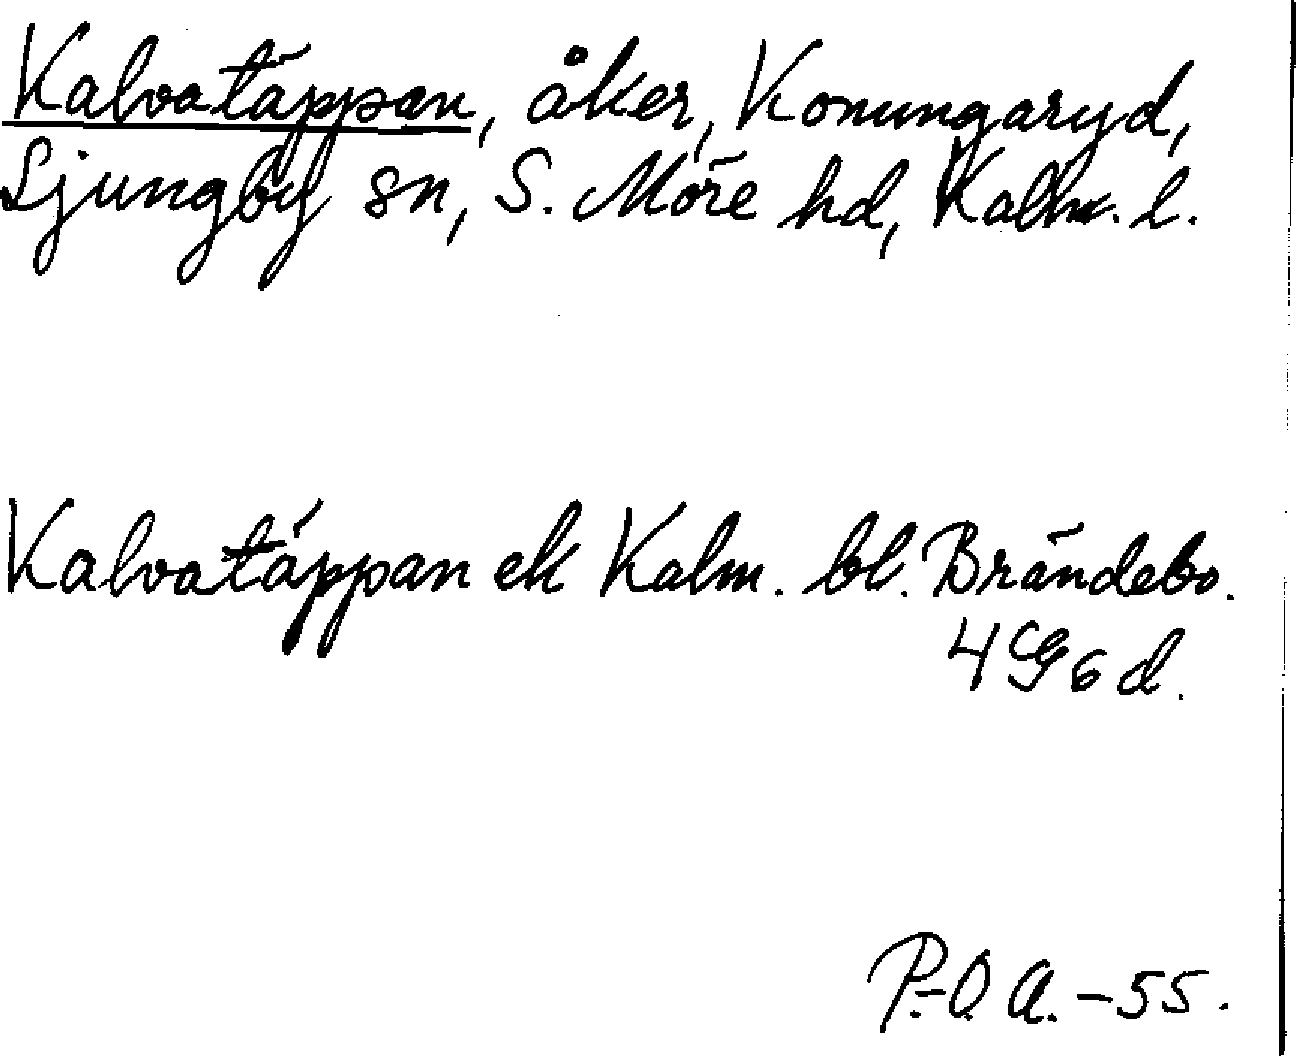 Kalvatäppan, åker, Konungaryd,
Ljungby sn, S. Möre hd, Kalm. l.
Kalvatäppan ek Kalm. bl. Brändebo.
4G6d.
P.-O. A. -55.